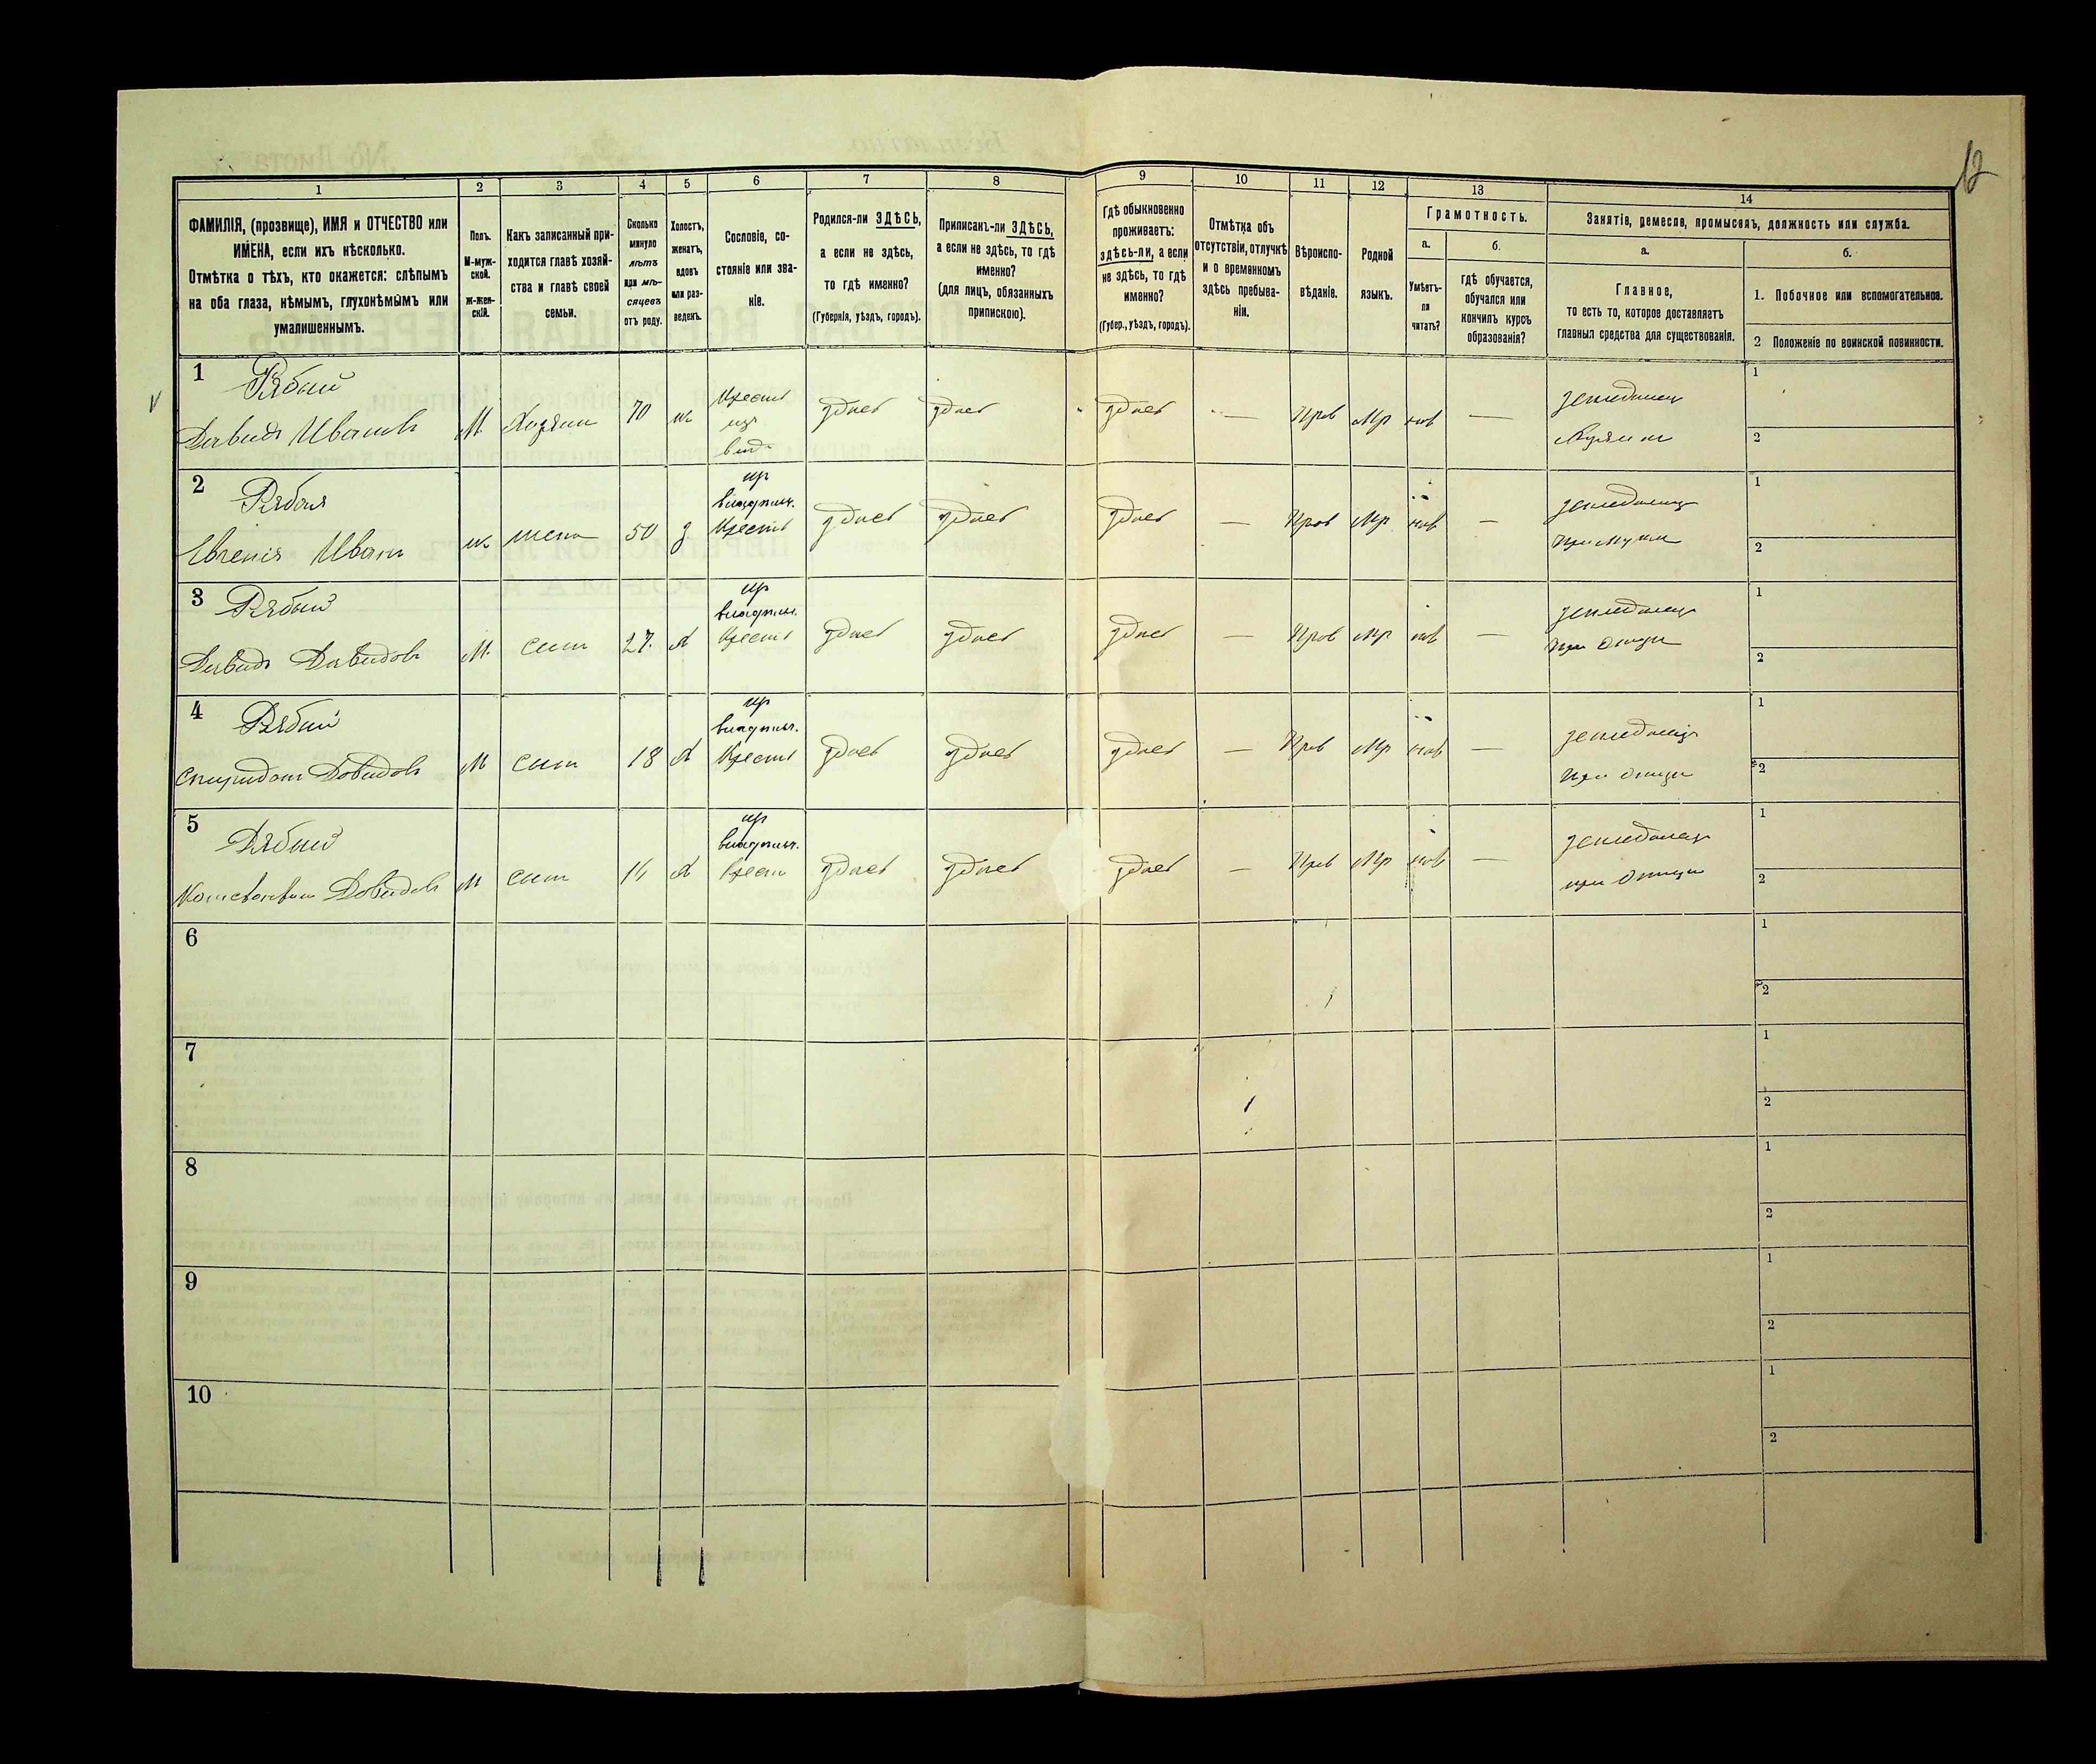 12
1 2 3 4 5 6 7 8 9 10 11 12 13 14
ФАМИЛІЯ, (прозвище), ИМЯ и ОТЧЕСТВО или
ИМЕНА, если ихъ нѣсколько.
Отмѣтка о тѣхъ, кто окажется: слѣпымъ
на оба глаза, нѣмымъ, глухонѣмымъ или
умалишеннымъ.
Полъ.
М-муж-
ской.
Ж-жен-
скій.
Какъ записанный при-
ходится главѣ хозяй-
ства и главѣ своей
семьи.
Сколько
минуло
лѣтъ
или мѣ-
сяцевъ
отъ роду.
Холостъ,
женатъ,
вдовъ
или раз-
веденъ.
Сословіе, со-
стояніе или зва-
ніе.
Родился-ли ЗДѢСЬ,
а если не здѣсь,
то гдѣ именно?
(Губернія, уѣздъ, городъ).
Приписанъ-ли ЗДѢСЬ,
а если не здѣсь, то гдѣ
именно?
(для лицъ, обязанныхъ
припискою).
Гдѣ обыкновенно
проживаетъ:
здѣсь-ли, а если
не здѣсь, то гдѣ
именно?
(Губер., уѣздъ, городъ).
Отмѣтка объ
отсутствіи, отлучкѣ
и о временномъ
здѣсь пребыва-
ніи.
Вѣроиспо-
вѣданіе.
Родной
языкъ.
Грамотность.
а.
Умѣетъ-
ли
читать?
б.
гдѣ обучается,
обучался или
кончилъ курсъ
образованія?
Занятіе, ремесло, промыселъ, должность или служба.
а.
Главное,
то есть то, которое доставляетъ
главныя средства для существованія.
б.
1. Побочное или вспомогательное.
2 Положеніе по воинской повинности.
1 Рябый
Давидъ Ивановъ М. Хозяинъ 70 ж. Крест здесь здесь здесь — Прав Мр — 1
2
2 Рябая
Евгенія Иван ж. жена 50 Крест здесь здесь здесь — Прав Мр — 1
при мужи 2
3 Рябый
Давидъ Давидовъ М. сынъ 27. Х Крест здесь здесь здесь — Прав Мр — 1
при отци 2
4 Рябый
Спиридонъ Довидовъ М сынъ 18 Х Крест здесь здесь здесь — Прав Мр — 1
при отци 2
5 Рябый
Довидовъ М сынъ Х Крест здесь здесь здесь — Прав Мр — 1
при отци 2
6 1
2
7 1
2
8 1
2
9 1
2
10 1
2